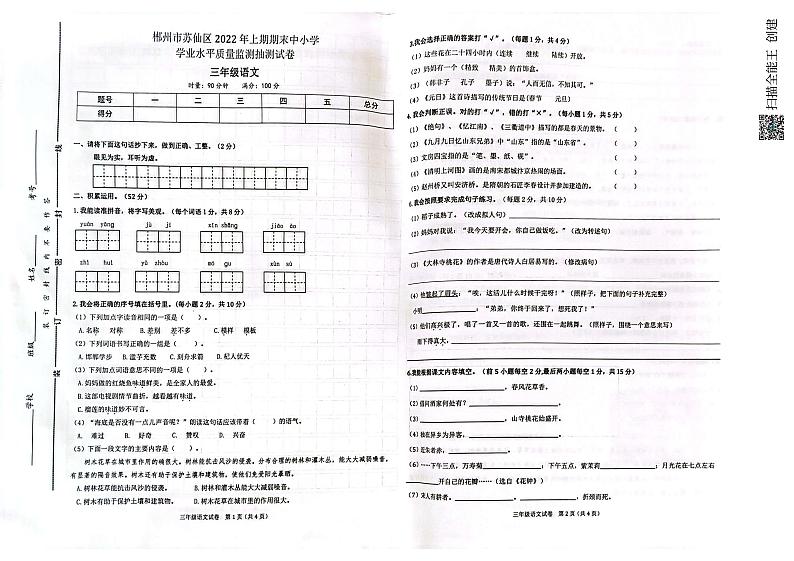 郴州市苏仙区2022年上期期末中小学
学业水平质量监测抽测试卷
三年级语文
时量：90分钟 满分：100分
题号 一 二 三 四 五 总分
得分
一、请将下面这句话抄下来。做到正确、工整。（2分）
眼见为实，耳听为虚。
二、积累运用。（52分）
1.我能读准拼音，将字写美观。（每个词语1分，共8分）
yuān yāng jù jí xīn shǎng jiāo ào
zhì huì yǔ zhòu gù sù xùn sù
2.我会将正确的序号填在括号里。（每小题2分，共10分）
（1）下列加点字读音相同的一项是（ ）。
A.名称 对称 B.差别 差不多 C.模样 模板
（2）下列词语书写正确的一组是（ ）。
A.邯郸学步 B.滥芋充数 C.刻舟求箭 D.杞人优天
（3）下列加点词语意思不同的一项是（ ）。
A.妈妈做的红烧鱼味道鲜美，是全家人的最爱。
B.这部电视剧情节曲折，越看越有味道。
C.榴莲的味道妙不可言。
（4）“海底是否没有一点儿声音呢？”朗读这句话应该带着（ ）的语气。
A. 难过 B. 好奇 C. 赞叹 D. 兴奋
（5）下面一段文字的主要内容是（ ）。
树木花草在城市里作用的确很大。树林能抗击风沙的侵袭。分布合理的树林和灌木丛，能大大减弱噪音。
有显著的隔音效果。树木还有助于保护土壤和建筑物，使他们免受阳光暴晒。
A.树林花草能抗击风沙的侵袭。 B.树林和灌木丛能大大减弱噪音。
C.树木有助于保护土壤和建筑物。 D.树木花草在城市里作用很大。
三年级语文试卷 第1页（共4页）
学校
班级
姓名
考号
装订密封线内不要作答
装
订
密
封
线
3.我会选择正确的答案打“√”。（每小题1分，共4分）
（1）这些花在二十四小时内（连续 继续 陆续）开放。
（2）妈妈有一个（精致 精美）的首饰盒。
（3）（韩非子 孔子 墨子）说：“人而无信，不知其可。”
（4）《元日》这首诗描写的传统节日是(春节 元旦)
4.我会判断正误。对的打“√”，错的打“×”。（每小题1分，共5分）
（1）《绝句》、《忆江南》、《三衢道中》描写的都是春天的景物。（ ）
（2）《九月九日忆山东兄弟》中“山东”指的是“山东省”。（ ）
（3）文房四宝指的是“笔、墨、纸、砚”。（ ）
（4）《清明上河图》画的是南宋都城汴京热闹的场面。（ ）
（5）赵州桥又叫安济桥。是隋朝的石匠李春设计并参加建造的。（ ）
5.我会按照要求完成句子练习。（每题2分，共10分）
（1）稻子成熟了。（改成拟人句）
（2）妈妈对我说：“我今天要开会，你自己做饭吃。”（改为转述句）
（3）《大林寺桃花》的作者是唐代诗人白居易写的。（修改病句）
（4）他皱起了眉头：“唉，这活儿什么时候干完呀！”（照样子，把下面的句子补充完整）
小明：“弟弟，你终于回来了，想死我了！”
（5）他们高兴极了，唱了一首又一首的歌，还围在一起跳舞。（照样子，围绕一个意思来写）
雨下得真大，
6.我能根据课文内容填空。（前5小题每空2分,最后两小题每空1分，共15分）
（1），春风花草香。
（2）借问酒家何处有？。
（3），山寺桃花始盛开。
（4）独在异乡为异客，。
（5）近朱者赤，。
（6）……下午三点，万寿菊；下午五点，紫茉莉；月光花在七点左右
开自己的花瓣（选自《花钟》）
（7）宋人有耕者。，折颈而死。
三年级语文试卷 第2页（共4页）
扫描全能王 创建